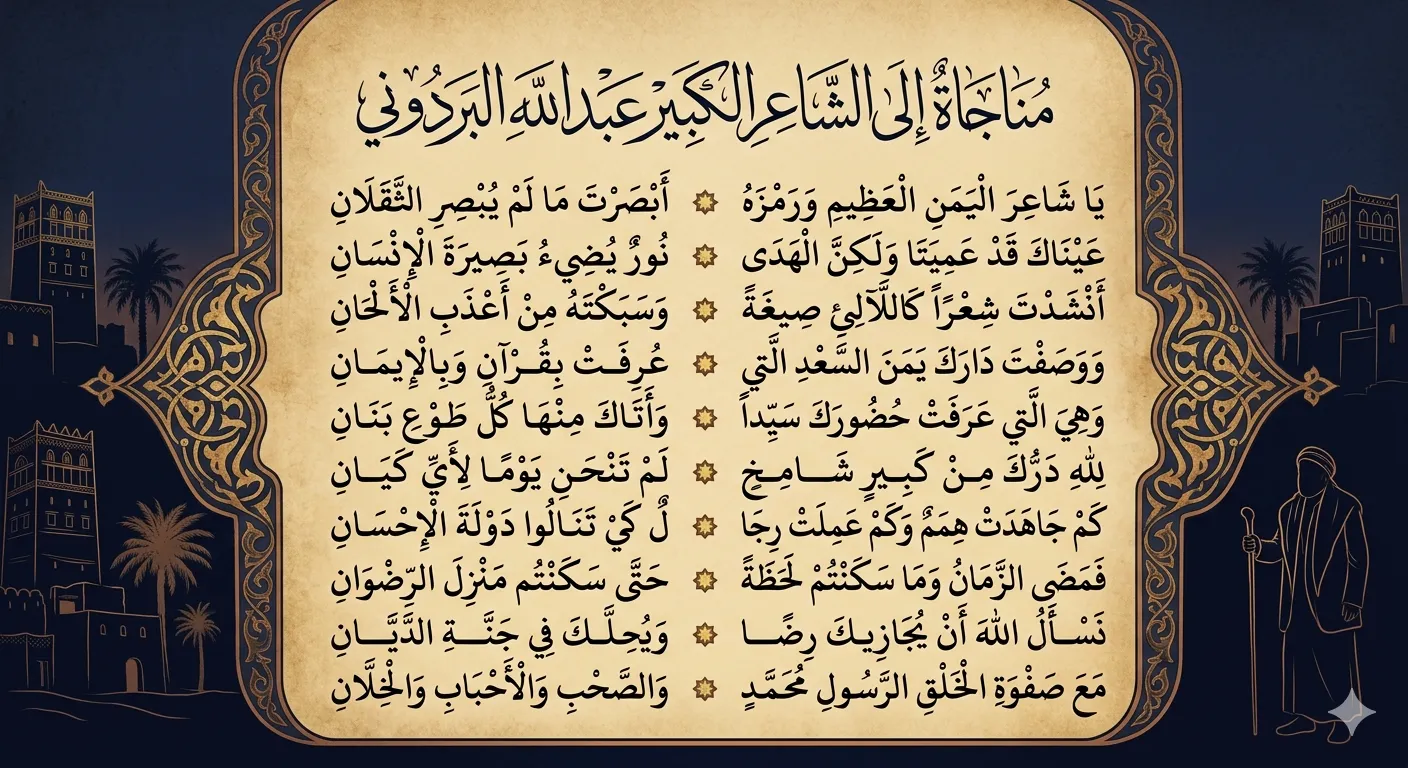 مُنَاجَاةٌ إِلَى الشَّاعِرِ الكَبِيْرِ عَبْدِاللَّهِ البَرَدُّوْنِي
يَا شَاعِرَ الْيَمَنِ الْعَظِيمِ وَرَمْزَهُ ۞ أَبْصَرْتَ مَا لَمْ يُبْصِرِ الثَّقَلَانِ
عَيْنَاكَ قَدْ عَمِيَتَا وَلَكِنَّ الْهَدَى ۞ نُورٌ يُضِيءُ بَصِيرَةَ الْإِنْسَانِ
أَنْشَدْتَ شِعْرًا كَاللَّآلِئِ صِيغَةً ۞ وَسَبَكْتَهُ مِنْ أَعْذَبِ الْأَلْحَانِ
وَوَصَفْتَ دَارَكَ يَمَنَ السَّعْدِ الَّتِي ۞ عُرِفَتْ بِقُرْآنٍ وَبِالْإِيمَانِ
وَهِيَ الَّتِي عَرَفَتْ حُضُورَكَ سَيِّداً ۞ وَأَتَاكَ مِنْهَا كُلُّ طَوْعِ بَنَانِ
لِلهِ دَرُّكَ مِنْ كَبِيرٍ شَامِخِ ۞ لَمْ تَنْحَنِ يَوْمًا لِأَيِّ كَيَانِ
كَمْ جَاهَدَتْ هِمَمٌ وَكَمْ عَمِلَتْ رِجَا ۞ لٌ كَيْ تَنَالُوا دَوْلَةَ الْإِحْسَانِ
فَمَضَى الزَّمَانُ وَمَا سَكَنْتُمْ لَحَظَةً ۞ حَتَّى سَكَنْتُم مَنْزِلَ الرِّضْوَانِ
نَسْأَلُ اللهَ أَنْ يُجَازِيكَ رِضًا ۞ وَيُحِلَّكَ فِي جَنَّةِ الدَّيَّانِ
مَعَ صَفْوَةِ الْخَلْقِ الرَّسُولِ مُحَمَّدٍ ۞ وَالصَّحْبِ وَالْأَحْبَابِ وَالْخِلَّانِ